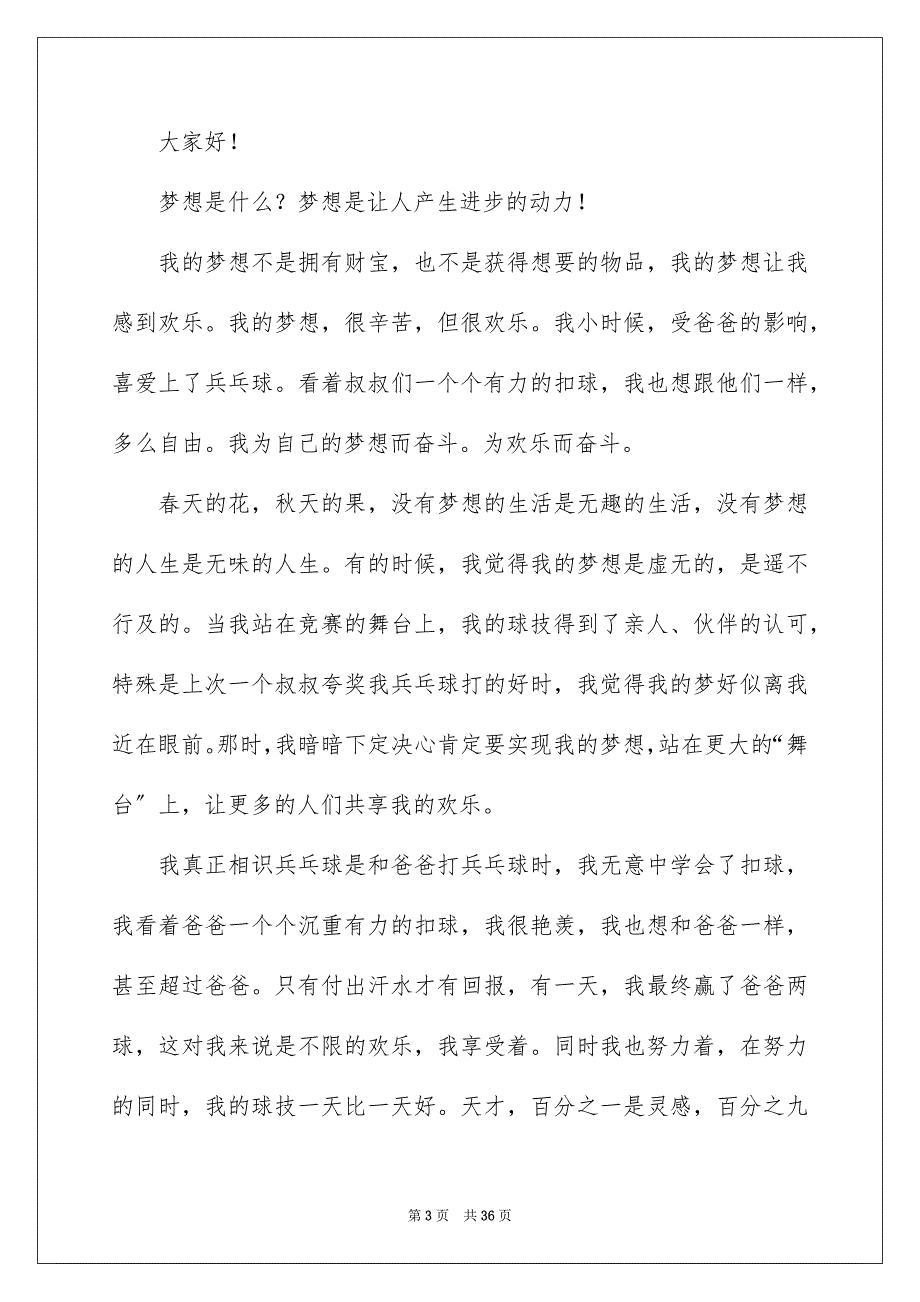 大家好！
梦想是什么？梦想是让人产生进步的动力！
我的梦想不是拥有财宝，也不是获得想要的物品，我的梦想让我
感到欢乐。我的梦想，很辛苦，但很欢乐。我小时候，受爸爸的影响，
喜爱上了兵乓球。看着叔叔们一个个有力的扣球，我也想跟他们一样，
多么自由。我为自己的梦想而奋斗。为欢乐而奋斗。
春天的花，秋天的果，没有梦想的生活是无趣的生活，没有梦想
的人生是无味的人生。有的时候，我觉得我的梦想是虚无的，是遥不
行及的。当我站在竞赛的舞台上，我的球技得到了亲人、伙伴的认可，
特殊是上次一个叔叔夸奖我兵乓球打的好时，我觉得我的梦好似离我
近在眼前。那时，我暗暗下定决心肯定要实现我的梦想，站在更大的“舞
台〞上，让更多的人们共享我的欢乐。
我真正相识兵乓球是和爸爸打兵乓球时，我无意中学会了扣球，
我看着爸爸一个个沉重有力的扣球，我很艳羡，我也想和爸爸一样，
甚至超过爸爸。只有付出汗水才有回报，有一天，我最终赢了爸爸两
球，这对我来说是不限的欢乐，我享受着。同时我也努力着，在努力
的同时，我的球技一天比一天好。天才，百分之一是灵感，百分之九
第 3 页 共 36 页